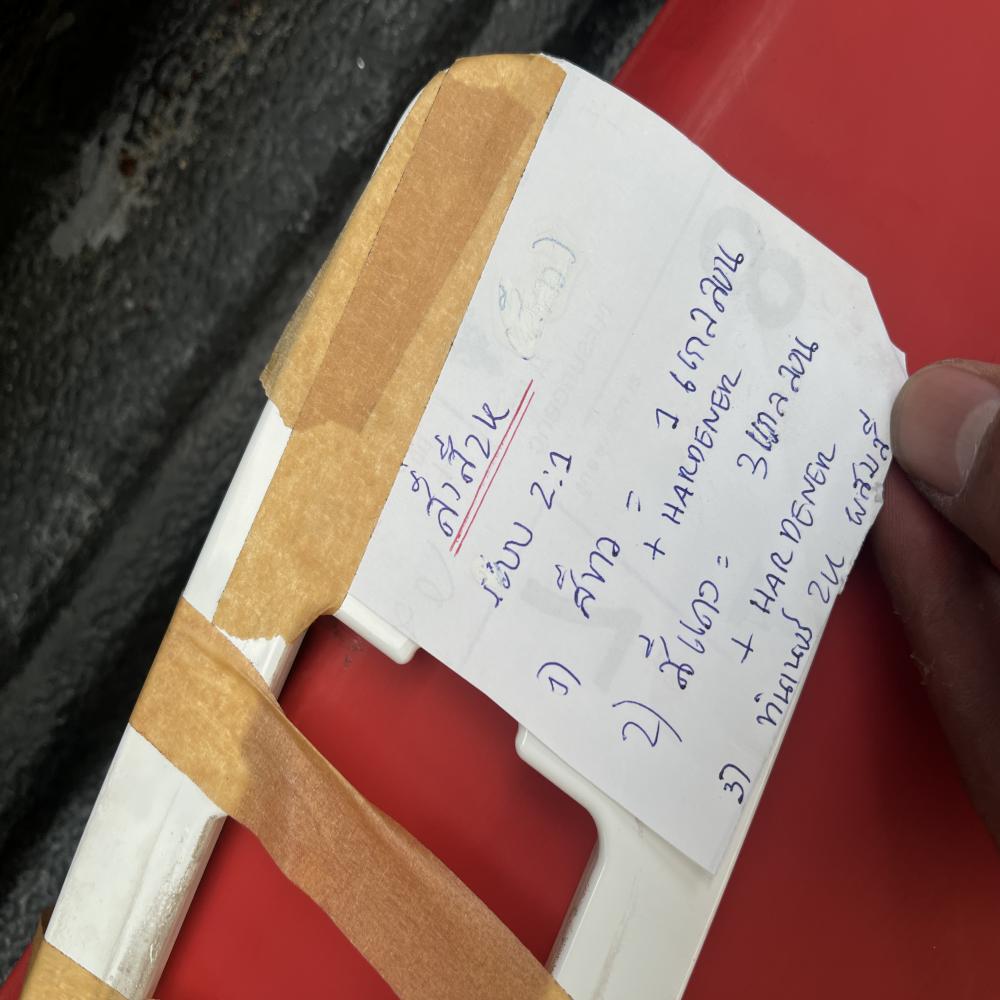 สั่งสี 2K
ระบบ 2:1
1) สีขาว = 1 แกลลอน
+ HARDENER
2) สีแดง = 3 แกลลอน
+ HARDENER
3) ทินเนอร์ 2K ผสมสี